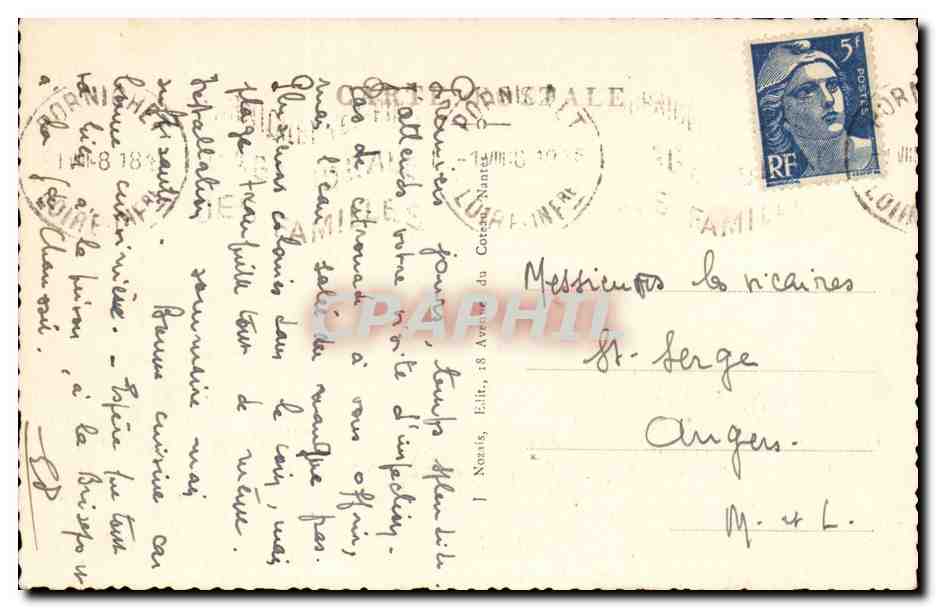 CARTE POSTALE
Premiers jours, temps splendide.
J'attends votre visite d'inspection.
Pas de citronade à vous offrir,
mais l'eau salée ne manque pas.
Plusieurs colonies dans le coin, mais
plage tranquille tout de même.
Installation sommaire mais
suffisante. Bonne cuisine car
bonne cuisinière. Espère que tout
va bien à la
à la
Messieurs les vicaires
St-Serge
Angers.
M. et L.
J. Nozais, Edit., 18 Avenue du Coteau, Nantes
5F
POSTES
RF
PORNICHET
LOIRE INFRE
FAMILLES
CPAPHIL